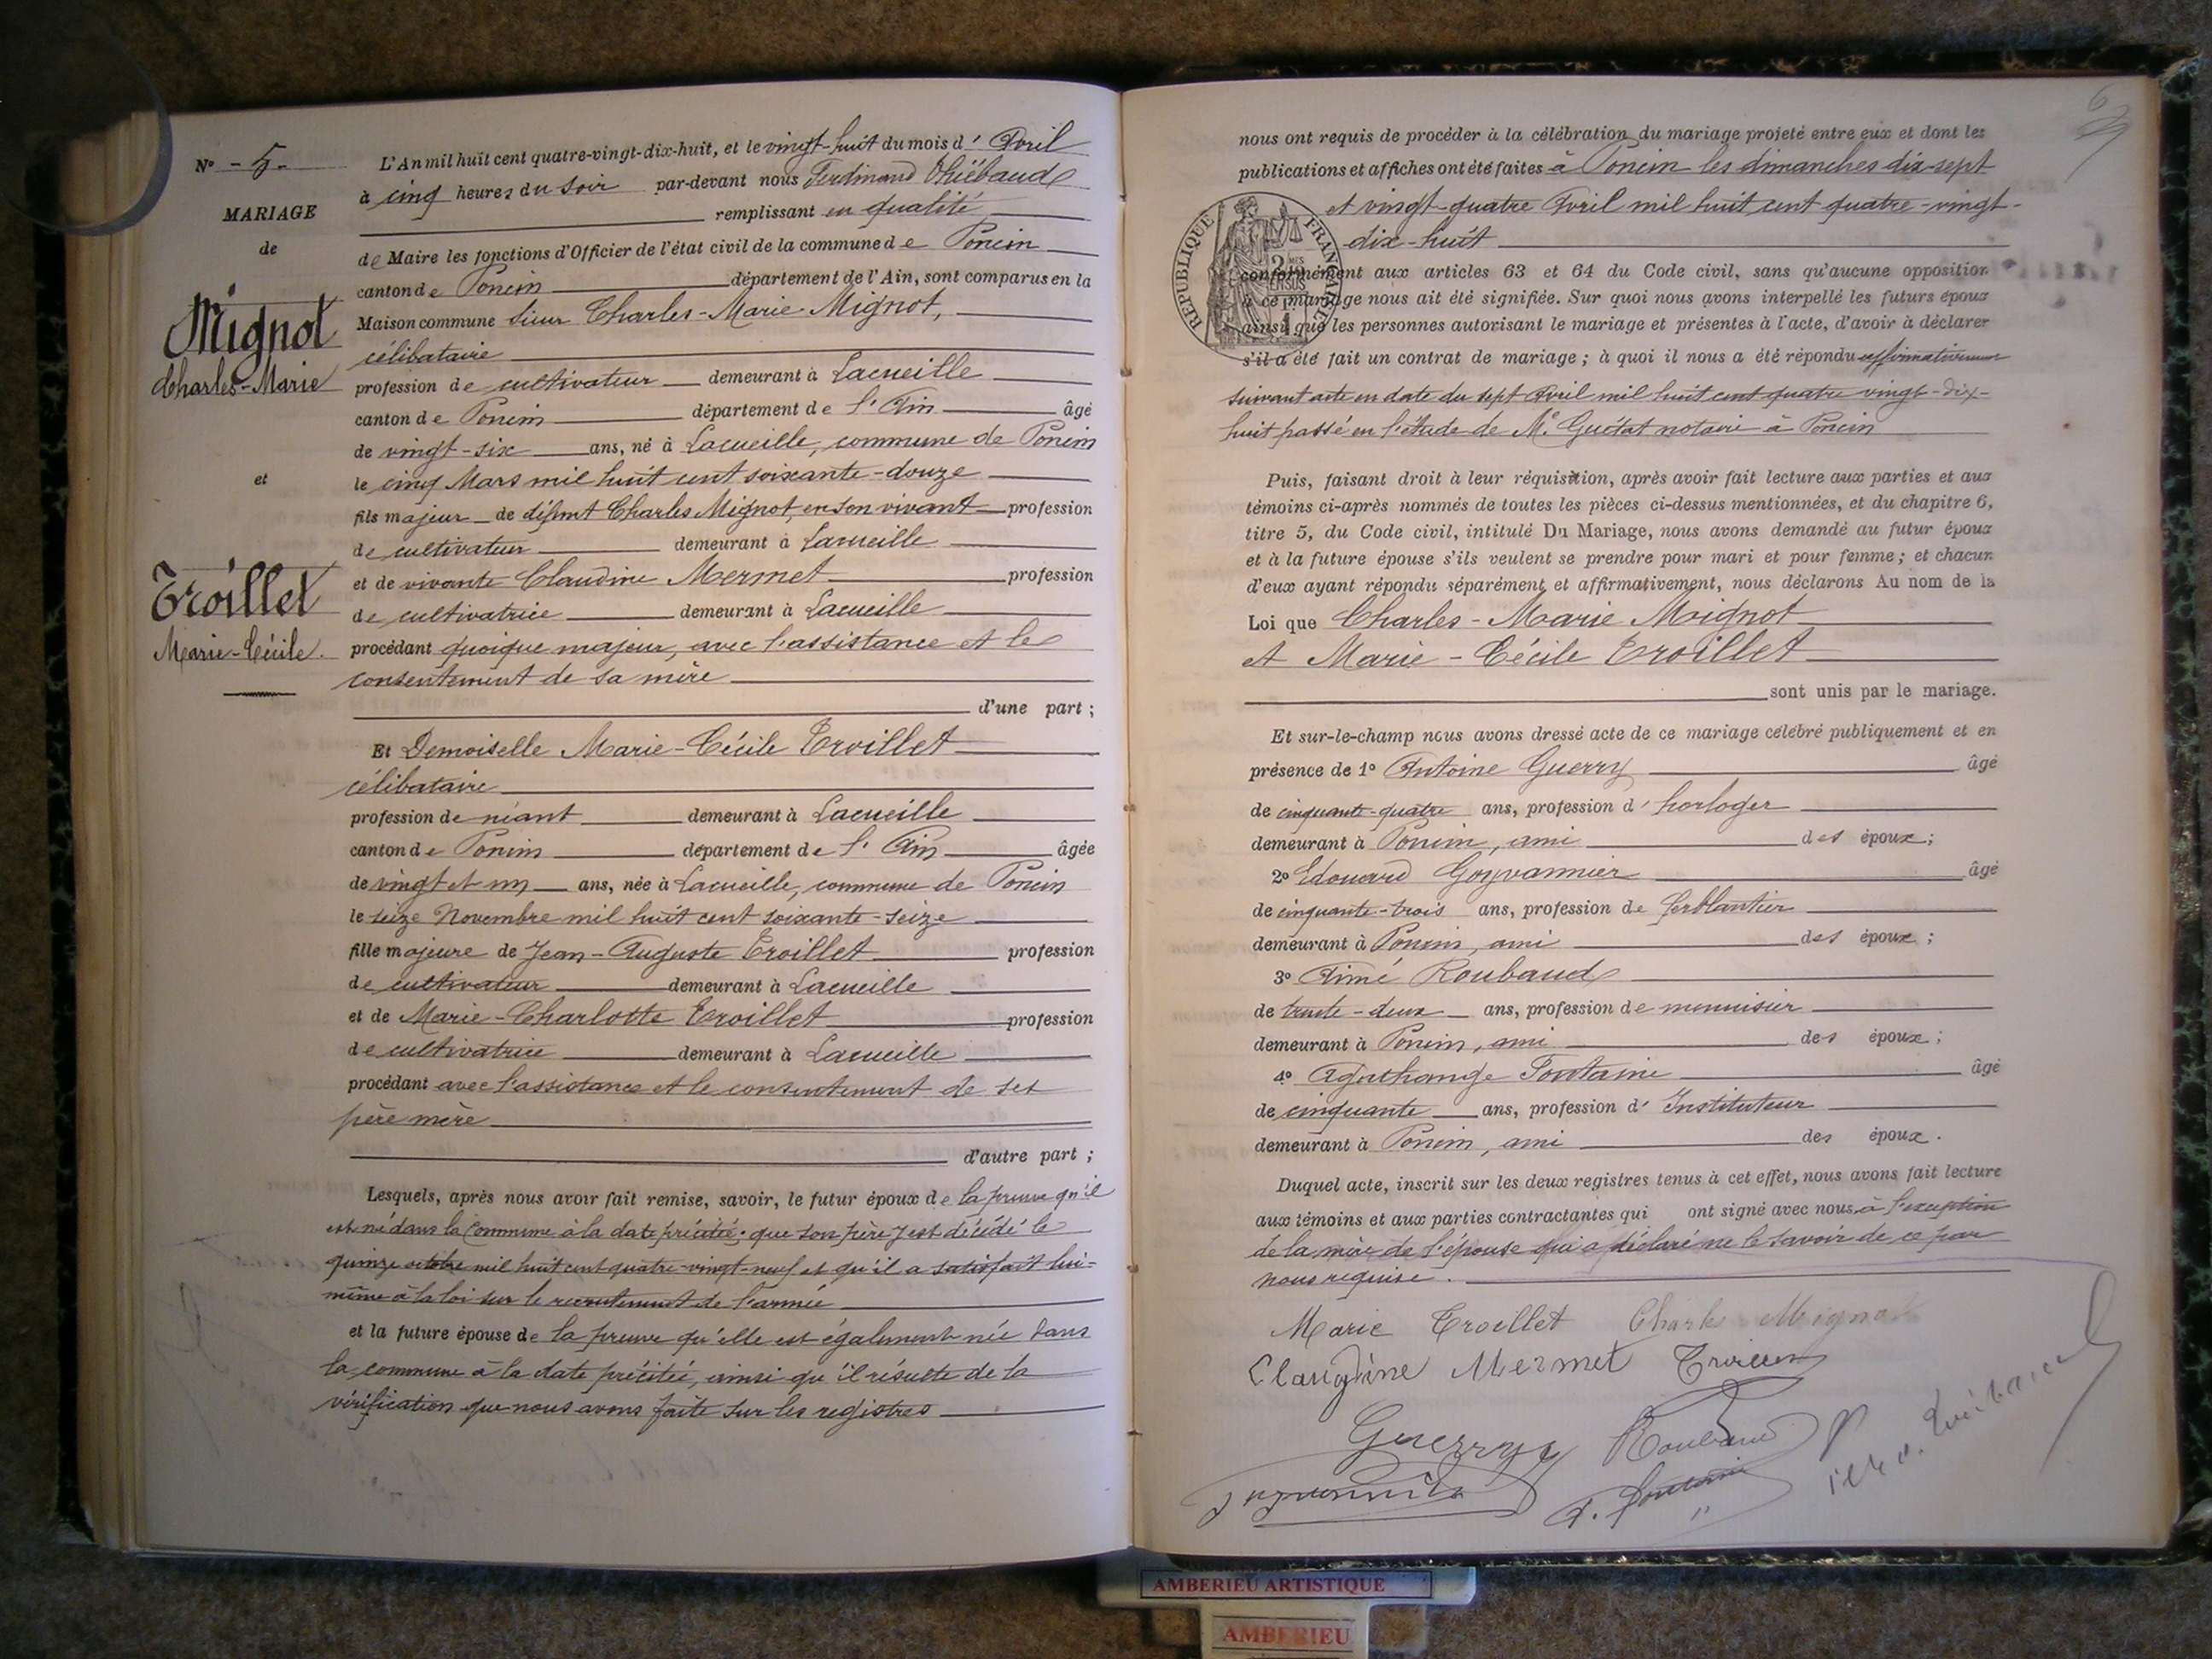 N° - 5 -
MARIAGE
de
Mignot
Charles-Marie
et
Troillet
Marie-Cécile.
L'An mil huit cent quatre-vingt-dix-huit, et le vingt-huit du mois d'Avril
à cinq heures du soir par-devant nous Ferdinand Thiébaud
remplissant en qualité
de Maire les fonctions d'Officier de l'état civil de la commune de Poncin
canton de Poncin département de l'Ain, sont comparus en la
Maison commune Sieur Charles-Marie Mignot,
célibataire
profession de cultivateur demeurant à Lacueille
canton de Poncin département de l'Ain âgé
de vingt-six ans, né à Lacueille, commune de Poncin
le cinq Mars mil huit cent soixante-douze
fils majeur de défunt Charles Mignot, en son vivant profession
de cultivateur demeurant à Lacueille
et de vivante Claudine Mermet profession
de cultivatrice demeurant à Lacueille
procédant quoique majeur, avec l'assistance et le
consentement de sa mère
d'une part ;
Et Demoiselle Marie-Cécile Troillet
célibataire
profession de néant demeurant à Lacueille
canton de Poncin département de l'Ain âgée
de vingt et un ans, née à Lacueille, commune de Poncin
le seize Novembre mil huit cent soixante-seize
fille majeure de Jean-Auguste Troillet profession
de cultivateur demeurant à Lacueille
et de Marie-Charlotte Troillet profession
de cultivatrice demeurant à Lacueille
procédant avec l'assistance et le consentement de ses
père mère
d'autre part ;
Lesquels, après nous avoir fait remise, savoir, le futur époux de la preuve qu'il
est né dans la Commune à la date précitée ; que son père y est décédé le
quinze octobre mil huit cent quatre-vingt-neuf et qu'il a satisfait lui-
même à la loi sur le recrutement de l'armée
et la future épouse de la preuve qu'elle est également née dans
la commune à la date précitée, ainsi qu'il résulte de la
vérification que nous avons faite sur les registres
nous ont requis de procéder à la célébration du mariage projeté entre eux et dont les
publications et affiches ont été faites à Poncin les dimanches dix-sept
et vingt-quatre Avril mil huit cent quatre-vingt-
dix-huit
RÉPUBLIQUE FRANÇAISE
conformément aux articles 63 et 64 du Code civil, sans qu'aucune opposition
à ce mariage nous ait été signifiée. Sur quoi nous avons interpellé les futurs époux
ainsi que les personnes autorisant le mariage et présentes à l'acte, d'avoir à déclarer
s'il a été fait un contrat de mariage ; à quoi il nous a été répondu affirmativement
suivant acte en date du sept Avril mil huit cent quatre vingt-dix-
huit passé en l'étude de Me Guétat notaire à Poncin
Puis, faisant droit à leur réquisition, après avoir fait lecture aux parties et aux
témoins ci-après nommés de toutes les pièces ci-dessus mentionnées, et du chapitre 6,
titre 5, du Code civil, intitulé Du Mariage, nous avons demandé au futur époux
et à la future épouse s'ils veulent se prendre pour mari et pour femme ; et chacun
d'eux ayant répondu séparément et affirmativement, nous déclarons Au nom de la
Loi que Charles-Marie Mignot
et Marie-Cécile Troillet
sont unis par le mariage.
Et sur-le-champ nous avons dressé acte de ce mariage célébré publiquement et en
présence de 1° Antoine Guerry âgé
de cinquante-quatre ans, profession d'horloger
demeurant à Poncin, ami des époux ;
2° Edouard Goyvannier âgé
de cinquante-trois ans, profession de ferblantier
demeurant à Poncin, ami des époux ;
3° Aimé Roubaud
de trente-deux ans, profession de menuisier
demeurant à Poncin, ami des époux ;
4° Agathange Fontaine âgé
de cinquante ans, profession d'Instituteur
demeurant à Poncin, ami des époux.
Duquel acte, inscrit sur les deux registres tenus à cet effet, nous avons fait lecture
aux témoins et aux parties contractantes qui ont signé avec nous à l'exception
de la mère de l'épouse qui a déclaré ne le savoir de ce par
nous requise.
Marie Troillet Charles Mignot
Claudine Mermet Troillet
Guerry Roubaud
A. Fontaine
Thiébaud
AMBERIEU ARTISTIQUE
AMBERIEU